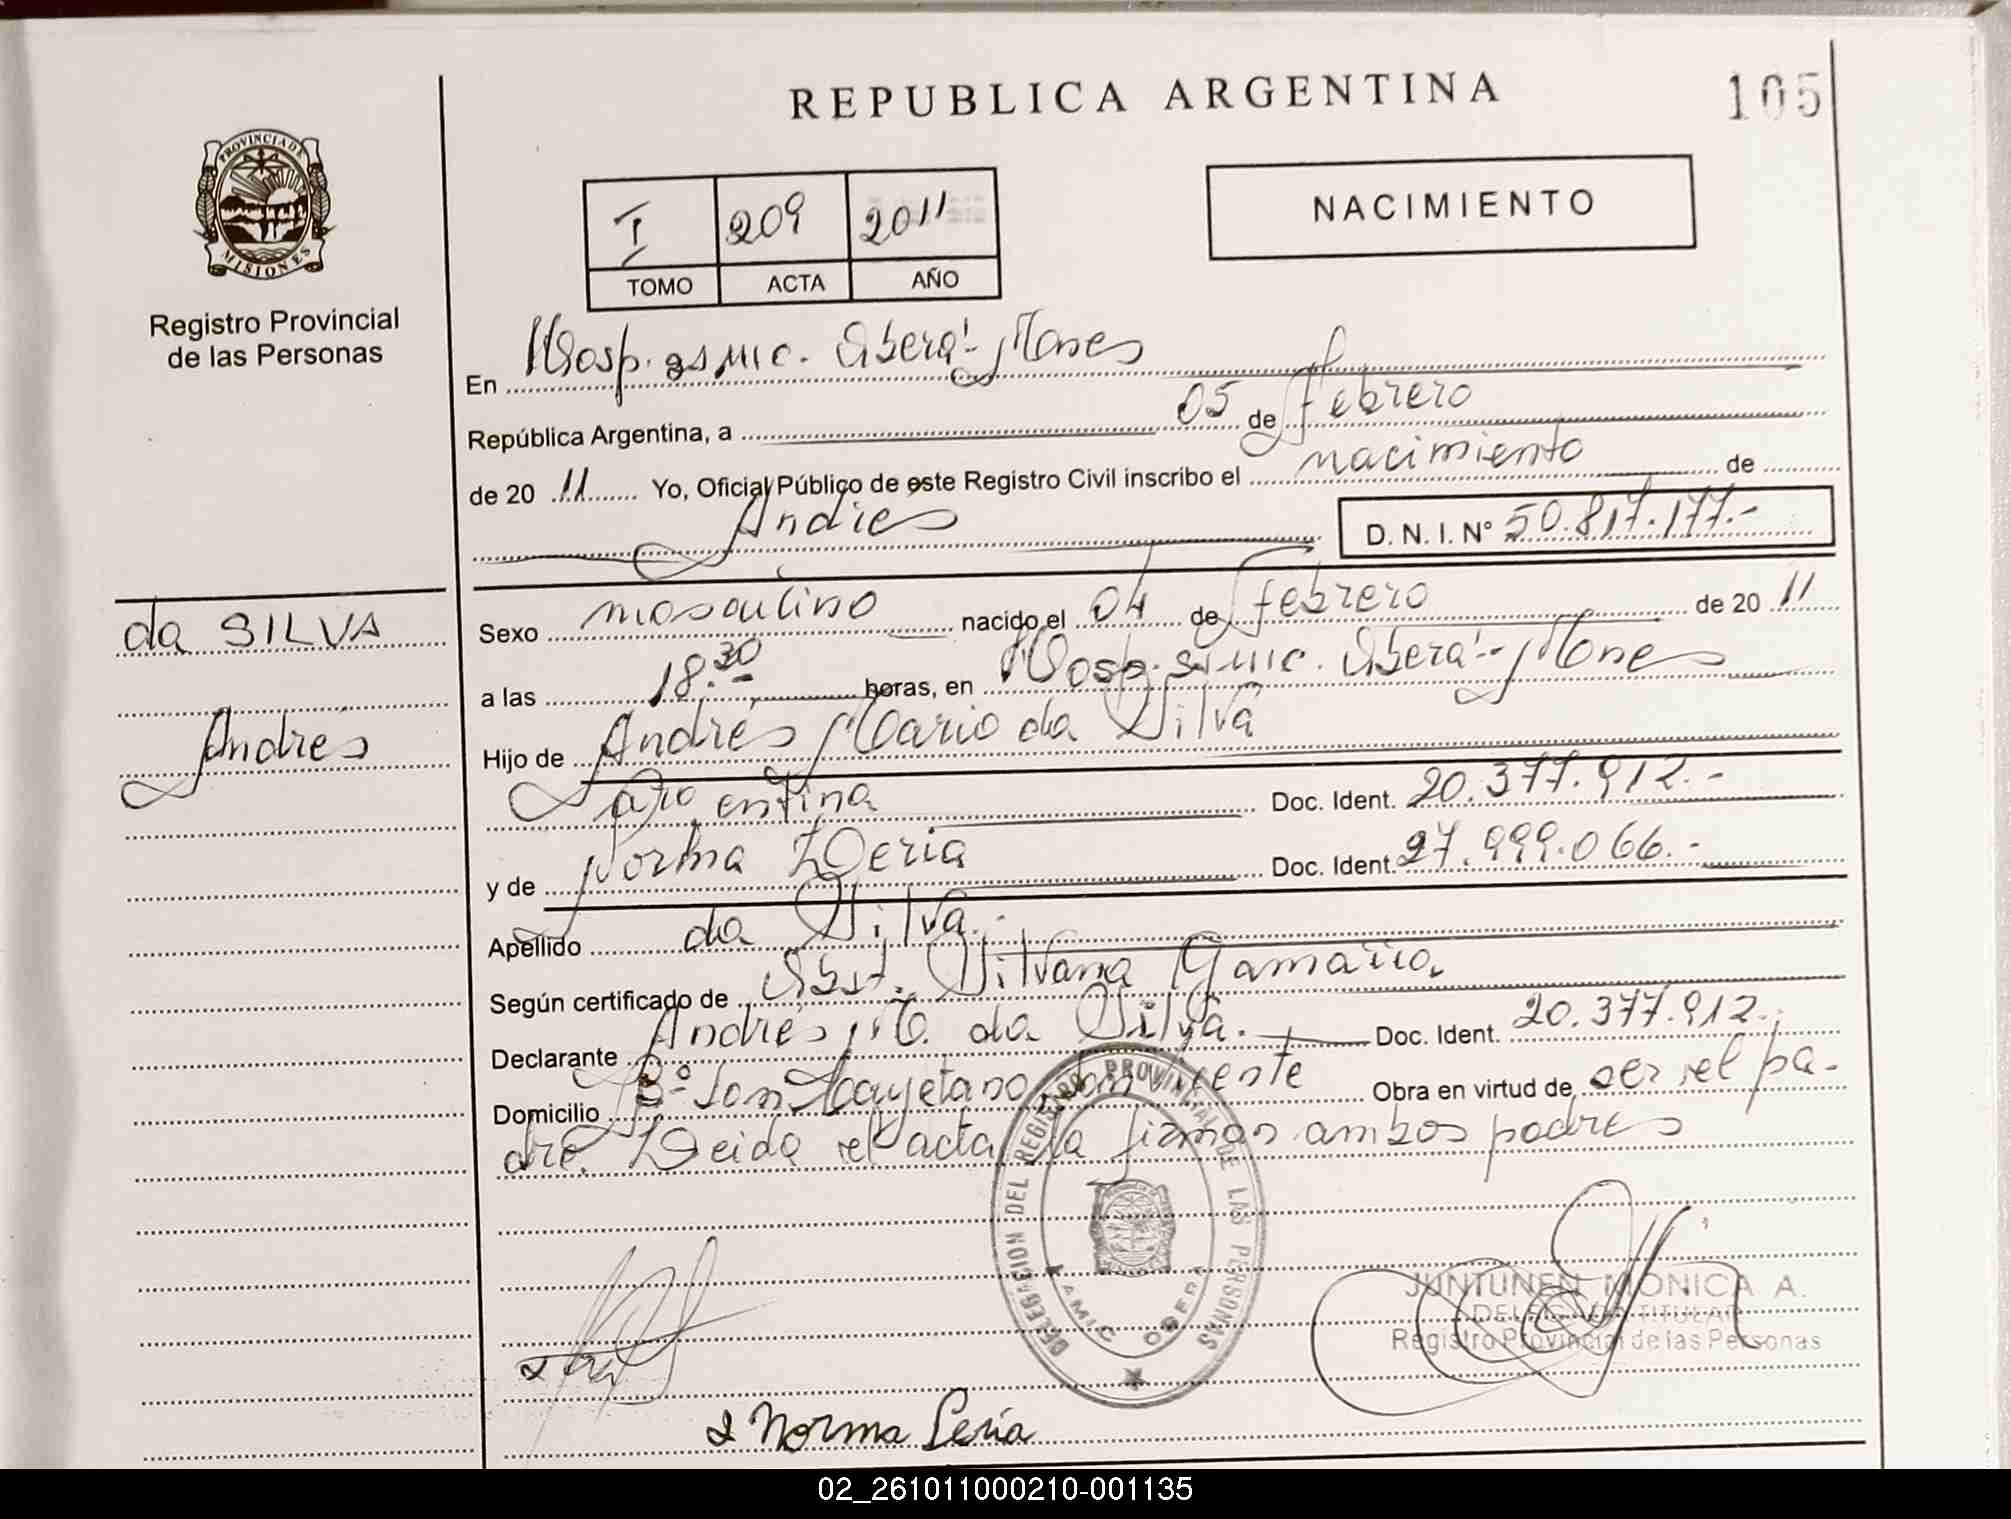 REPUBLICA ARGENTINA
105
PROVINCIA DE
MISIONES
Registro Provincial
de las Personas
I 209 2011
TOMO ACTA AÑO
NACIMIENTO
En Hosp. Oberá-Mones
República Argentina, a 05 de febrero
de 20 11 Yo, Oficial Público de este Registro Civil inscribo el nacimiento de
Andrés
D. N. I. Nº 50.817.177.-
da SILVA
Andrés
Sexo masculino nacido el 04 de febrero de 20 11
a las 18.30 horas, en Hosp. Oberá-Mones
Hijo de Andrés Mario da Silva
argentina Doc. Ident. 20.377.912.-
y de Norma Leria Doc. Ident. 27.999.066.-
Apellido da Silva.
Según certificado de Obst. Silvana
Declarante Andrés M. da Silva. Doc. Ident. 20.377.912.
Domicilio Bº San Cayetano, San Vicente Obra en virtud de ser el pa-
dre. Leida el acta la firman ambos padres
DELEGACION DEL REGISTRO PROVINCIAL DE LAS PERSONAS
SAMIC OBERA
JUNTUNEN MONICA A.
DELEGADO TITULAR
Registro Provincial de las Personas
Norma Leria
02_261011000210-001135